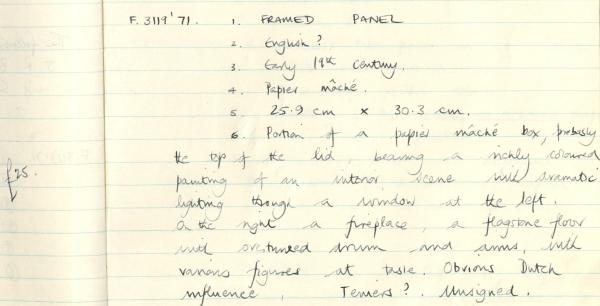 F.3119'71. 1. FRAMED PANEL
2. English?
3. Early 19th Century.
4. Papier mâché.
5 25.9 cm x 30.3 cm.
6. Portion of a papier mâché box, probably
the top of the lid, bearing a richly coloured
£25.
painting of an interior scene with dramatic
lighting through a window at the left.
On the right a fireplace, a flagstone floor
with overturned drum and arms, with
various figures at table. Obvious Dutch
influence, Teniers? Unsigned.